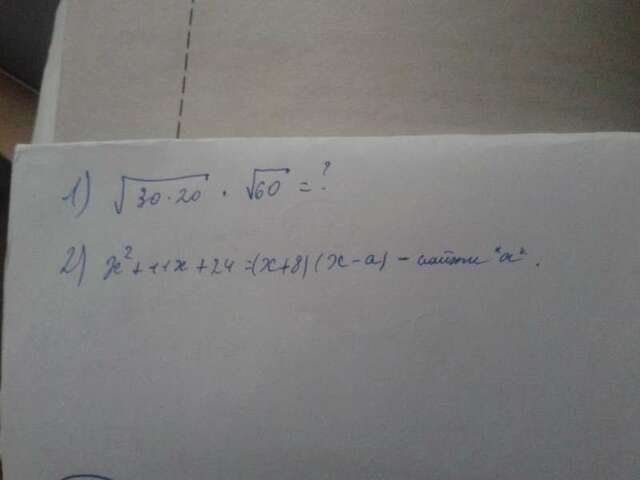 1) √30·20 · √60 = ?
2) x² + 11x + 24 = (x+8)(x-a) - найти "а".